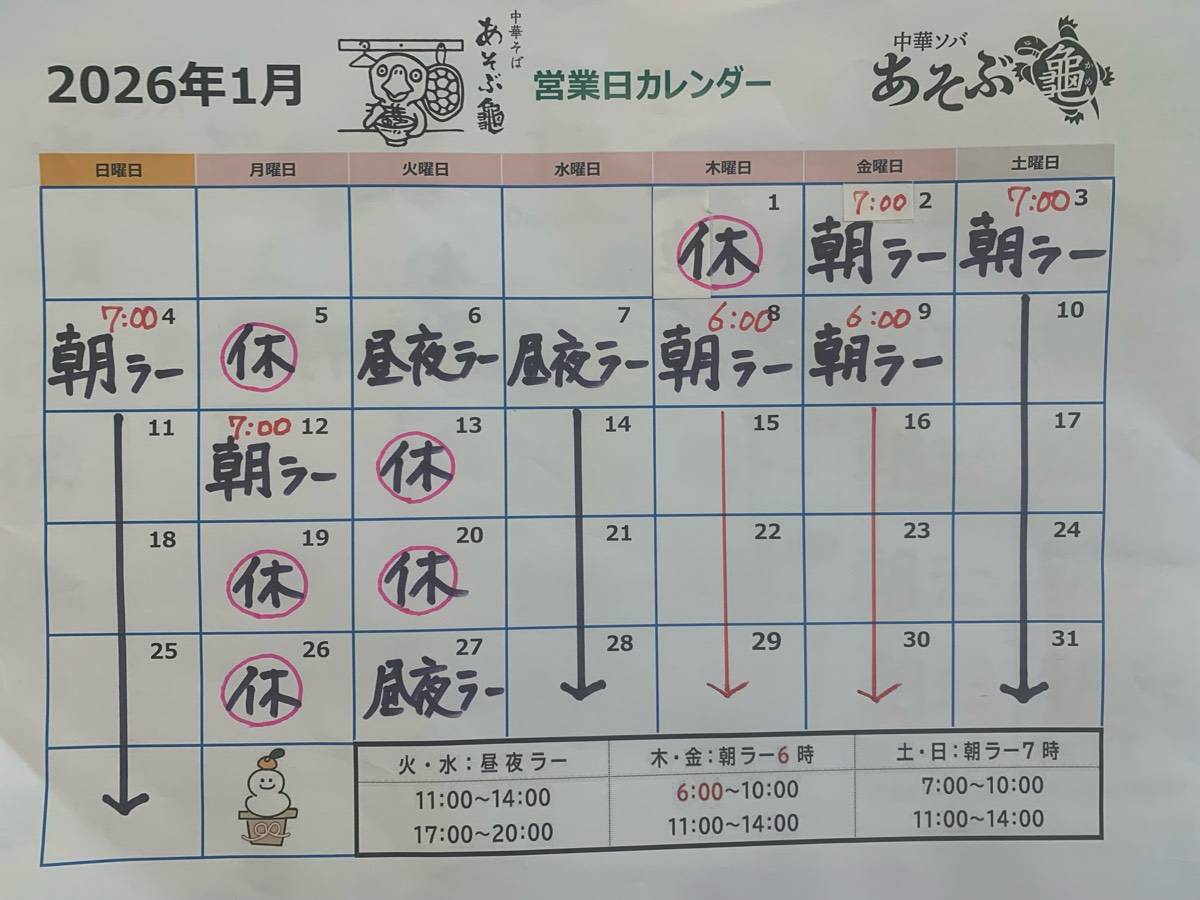 2026年1月
中華そば
あそぶ龜
営業日カレンダー
中華ソバ
あそぶ龜
かめ
日曜日 月曜日 火曜日 水曜日 木曜日 金曜日 土曜日
1 7:00 2 7:00 3
休 朝ラー 朝ラー
7:00 4 5 6 7 6:00 8 6:00 9 10
朝ラー 休 昼夜ラー 昼夜ラー 朝ラー 朝ラー
11 7:00 12 13 14 15 16 17
朝ラー 休
18 19 20 21 22 23 24
休 休
25 26 27 28 29 30 31
休 昼夜ラー
火・水：昼夜ラー 木・金：朝ラー6時 土・日：朝ラー7時
11:00～14:00 6:00～10:00 7:00～10:00
17:00～20:00 11:00～14:00 11:00～14:00